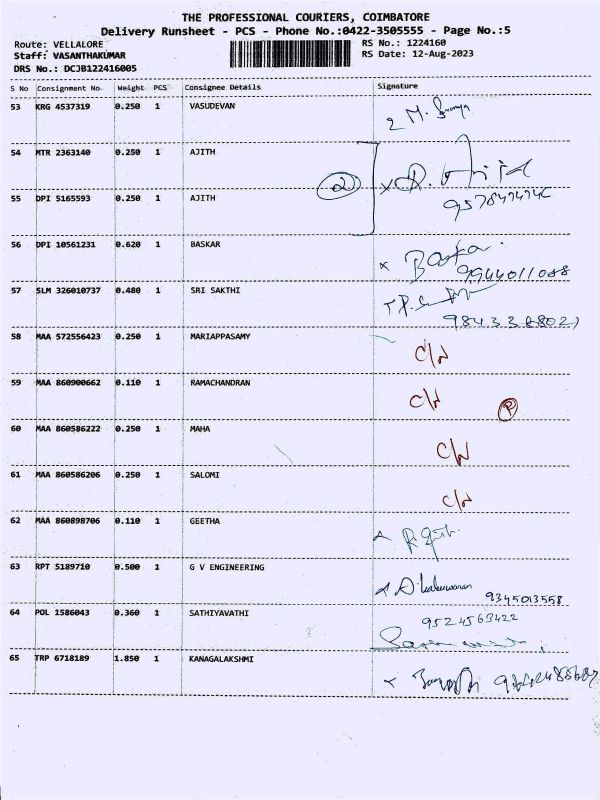 THE PROFESSIONAL COURIERS, COIMBATORE
Delivery Runsheet - PCS - Phone No.:0422-3505555 - Page No.:5
Route: VELLALORE RS No.: 1224160
Staff: VASANTHAKUMAR RS Date: 12-Aug-2023
DRS No.: DCJB122416005
S No Consignment No Weight PCS Consignee Details Signature
53 KRG 4537319 0.250 1 VASUDEVAN
54 MTR 2363140 0.250 1 AJITH
2
55 DPI 5165593 0.250 1 AJITH
56 DPI 10561231 0.620 1 BASKAR Baskar
9944011088
57 SLM 326010737 0.480 1 SRI SAKTHI
58 MAA 572556423 0.250 1 MARIAPPASAMY C/N
59 MAA 860900662 0.110 1 RAMACHANDRAN C/N P
60 MAA 860586222 0.250 1 MAHA C/N
61 MAA 860586206 0.250 1 SALOMI C/N
62 MAA 860898706 0.110 1 GEETHA
63 RPT 5189710 0.500 1 G V ENGINEERING 9345013558
64 POL 1586043 0.360 1 SATHIYAVATHI 9524563422
65 TRP 6718189 1.850 1 KANAGALAKSHMI